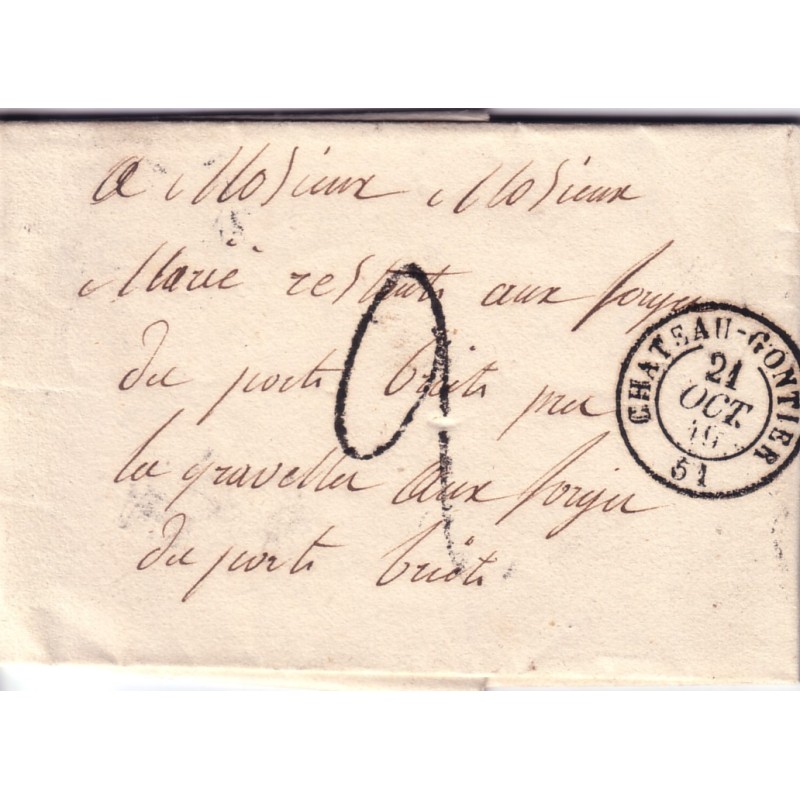 a Mosieur Mosieur
Marié restants aux forges
du ports briets pres
la gravelles aux forges
du ports briets
2
CHATEAU-GONTIER
21
OCT.
51